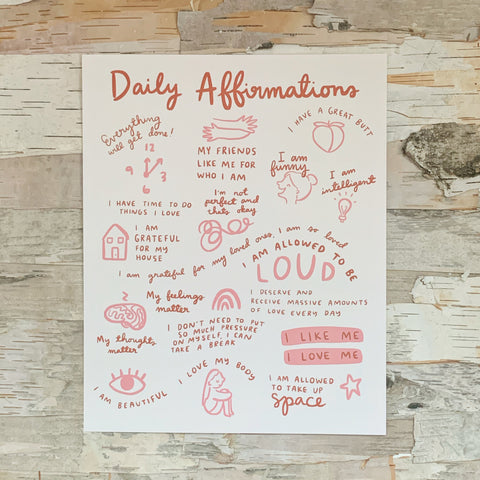 Daily Affirmations
Everything
will get done!
12
3
6
9
MY FRIENDS
LIKE ME FOR
WHO I AM
I HAVE A GREAT BUTT
I am
funny
I am
intelligent
I HAVE TIME TO DO
THINGS I LOVE
I'm not
perfect and
thats okay
I AM
GRATEFUL
FOR MY
HOUSE
I am grateful for my loved ones, I am so loved
I AM ALLOWED TO BE
LOUD
My feelings
matter
I DESERVE AND
RECEIVE MASSIVE AMOUNTS
OF LOVE EVERY DAY
My thoughts
matter
I DON'T NEED TO PUT
SO MUCH PRESSURE
ON MYSELF, I CAN
TAKE A BREAK
I LIKE ME
I LOVE ME
I AM BEAUTIFUL
I LOVE MY BODY
I AM ALLOWED
TO TAKE UP
space